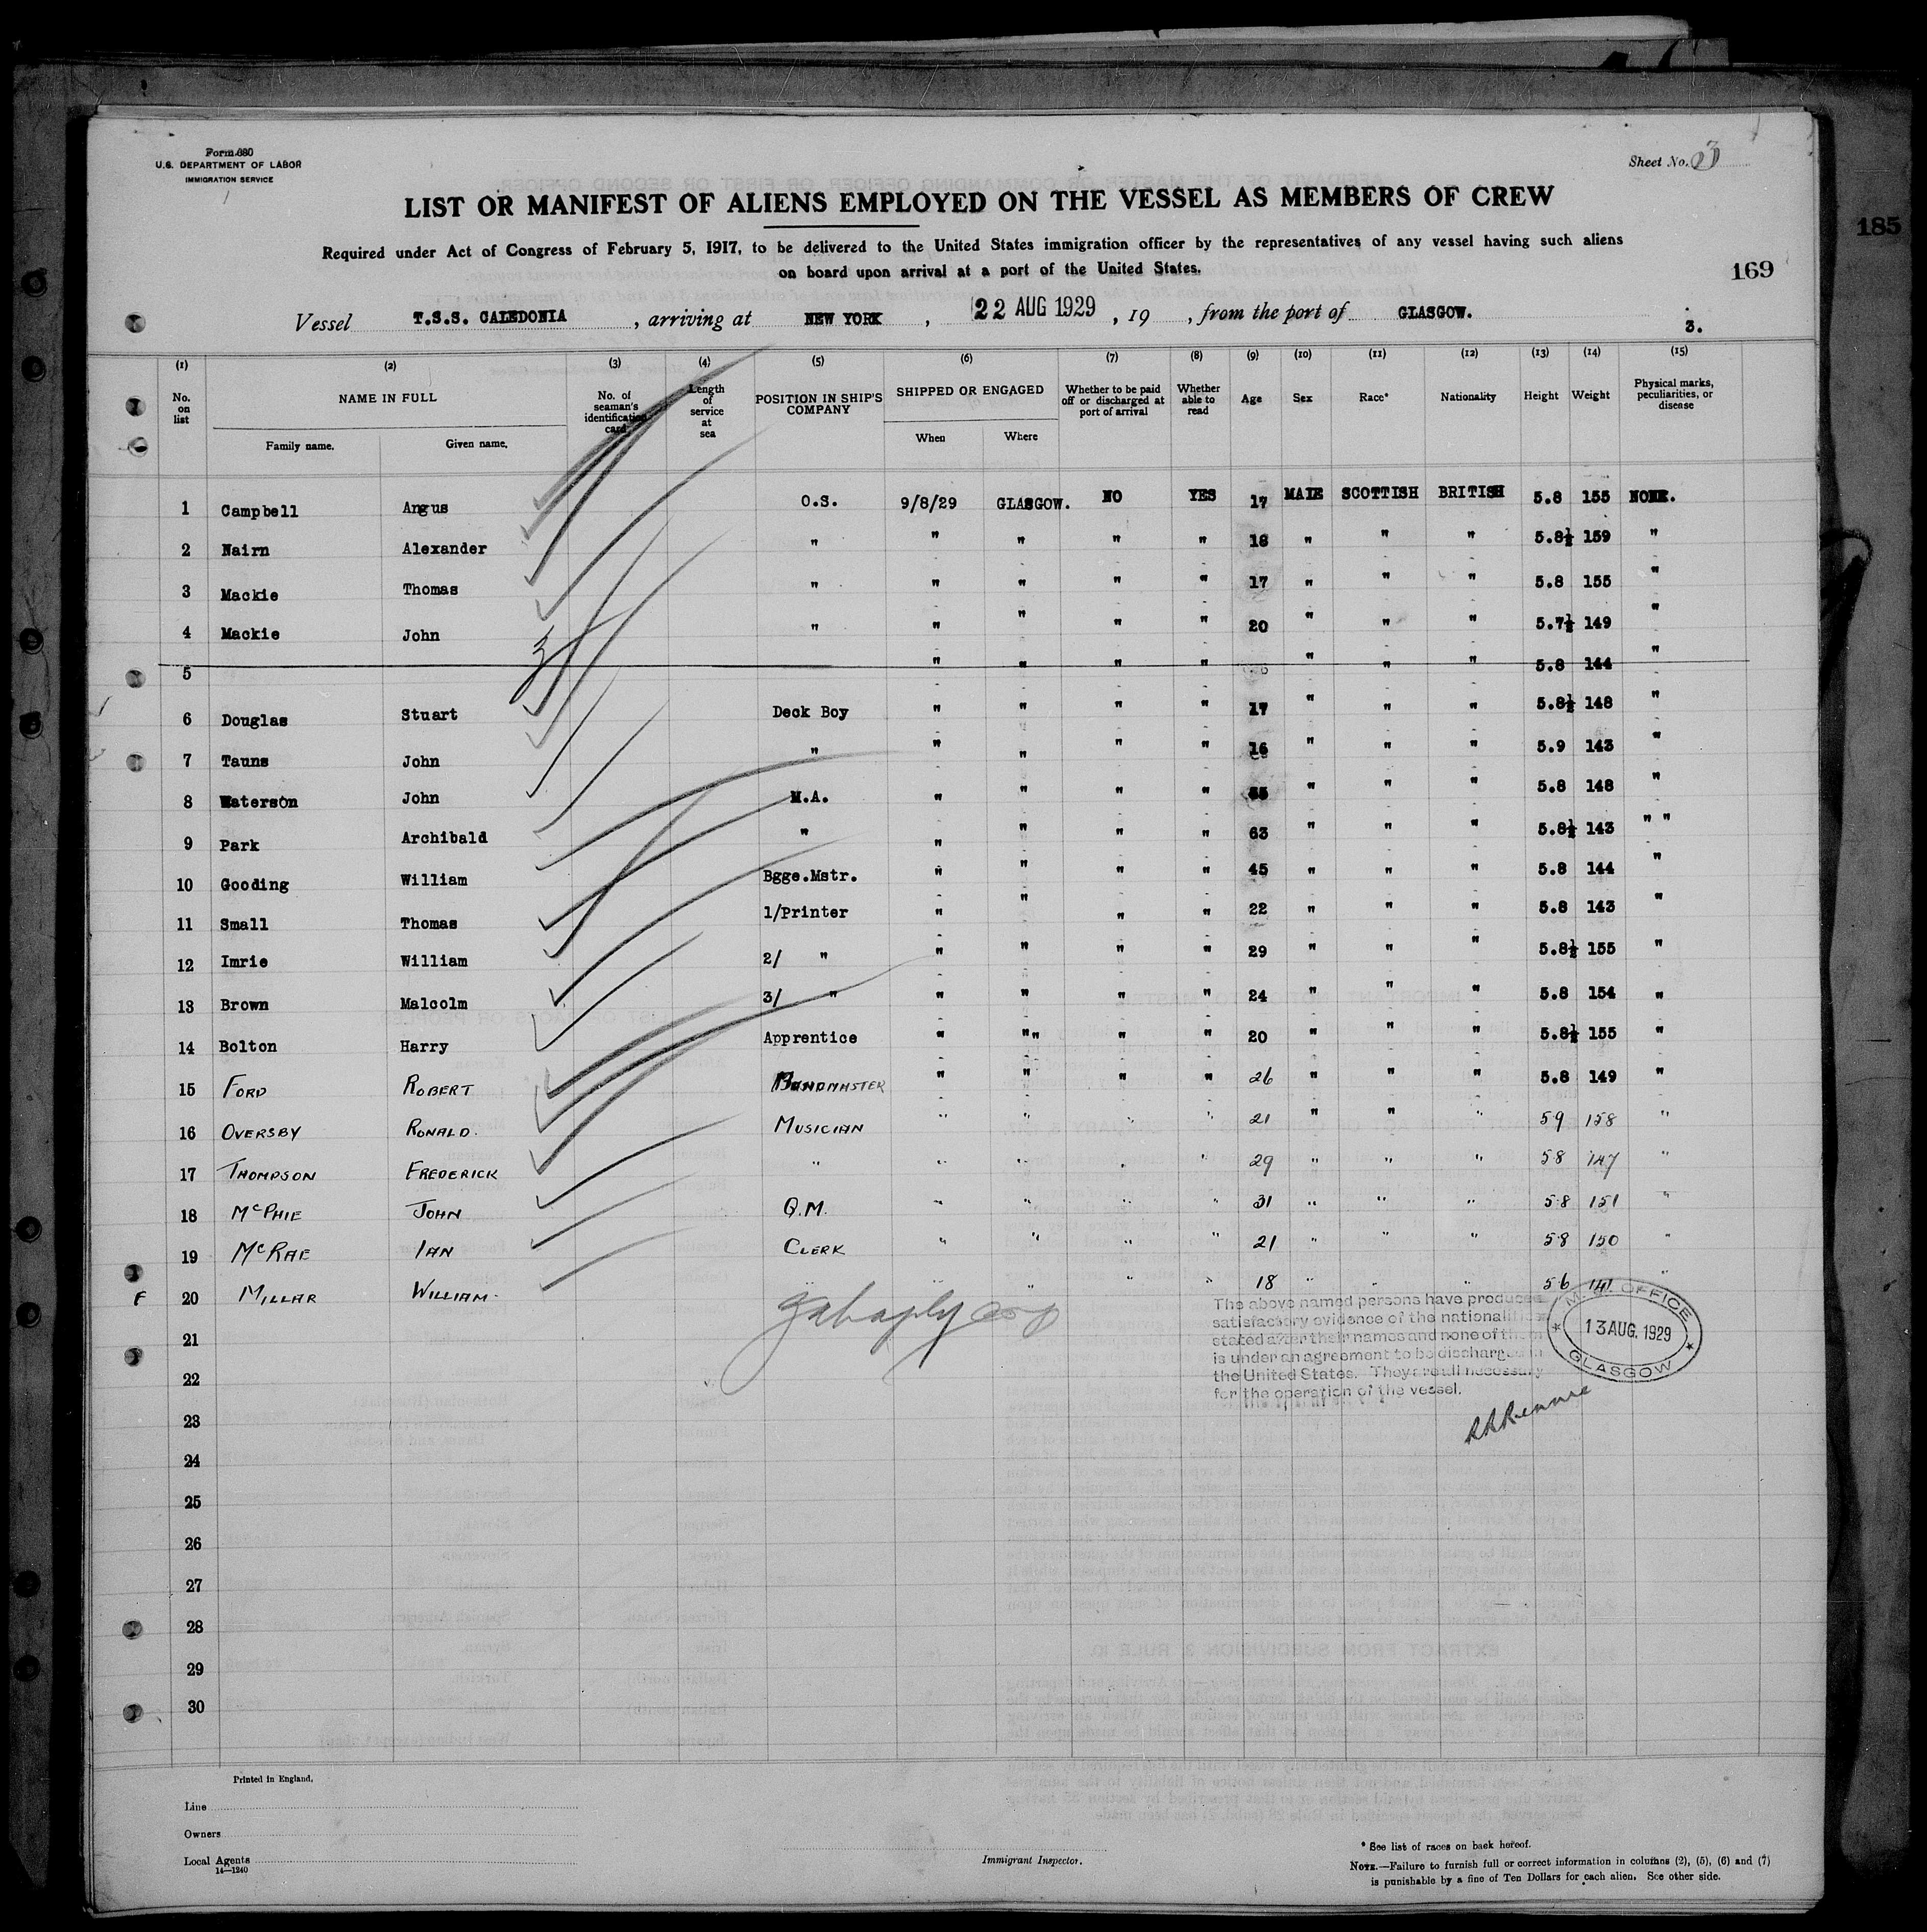 Form 680
U.S. DEPARTMENT OF LABOR
IMMIGRATION SERVICE
Sheet No. 3
LIST OR MANIFEST OF ALIENS EMPLOYED ON THE VESSEL AS MEMBERS OF CREW
Required under Act of Congress of February 5, 1917, to be delivered to the United States immigration officer by the representatives of any vessel having such aliens
on board upon arrival at a port of the United States.
185
169
Vessel T.S.S. CALEDONIA, arriving at NEW YORK, 22 AUG 1929, 19 , from the port of GLASGOW.
3.
(1) (2) (3) (4) (5) (6) (7) (8) (9) (10) (11) (12) (13) (14) (15)
No. on list NAME IN FULL Family name. Given name. No. of seaman's identification card. Length of service at sea POSITION IN SHIP'S COMPANY SHIPPED OR ENGAGED When Where Whether to be paid off or discharged at port of arrival Whether able to read Age Sex Race* Nationality Height Weight Physical marks, peculiarities, or disease
1 Campbell Angus O.S. 9/8/29 GLASGOW. NO YES 17 MALE SCOTTISH BRITISH 5.8 155 NONE.
2 Nairn Alexander " " " " " 18 " " " 5.8½ 159 "
3 Mackie Thomas " " " " " 17 " " " 5.8 155 "
4 Mackie John " " " " " 20 " " " 5.7½ 149 "
5 " " " " " " " 5.8 144 "
6 Douglas Stuart Deck Boy " " " " 17 " " " 5.8½ 148 "
7 Tauns John " " " " " 16 " " " 5.9 143 "
8 Waterson John M.A. " " " " " " " 5.8 148 "
9 Park Archibald " " " " " 63 " " " 5.8½ 143 " "
10 Gooding William Bgge.Mstr. " " " " 45 " " " 5.8 144 "
11 Small Thomas 1/Printer " " " " 22 " " " 5.8 143 "
12 Imrie William 2/ " " " " " 29 " " " 5.8½ 155 "
13 Brown Malcolm 3/ " " " " " 24 " " " 5.8 154 "
14 Bolton Harry Apprentice " " " " " 20 " " " 5.8½ 155 "
15 FORD ROBERT BANDMASTER " " " " 26 " " " 5.8 149 "
16 OVERSBY RONALD. MUSICIAN " " " " 21 " " " 5 9 158 "
17 THOMPSON FREDERICK " " " " " 29 " " " 5 8 147 "
18 McPHIE JOHN Q.M. " " " " 31 " " " 5 8 151 "
19 McRAE IAN CLERK " " " " 21 " " " 5 8 150 "
F 20 MILLAR WILLIAM. " " " " " 18 " " " 5 6 141 "
21
22
23
24
25
26
27
28
29
30
The above named persons have produced
satisfactory evidence of the nationalities
stated after their names and none of them
is under an agreement to be discharged in
the United States. They are all necessary
for the operation of the vessel.
M. M. OFFICE
13 AUG. 1929
GLASGOW
Printed in England.
Line
Owners
Local Agents
14—1240
Immigrant Inspector.
* See list of races on back hereof.
NOTE.—Failure to furnish full or correct information in columns (2), (5), (6) and (7)
is punishable by a fine of Ten Dollars for each alien. See other side.